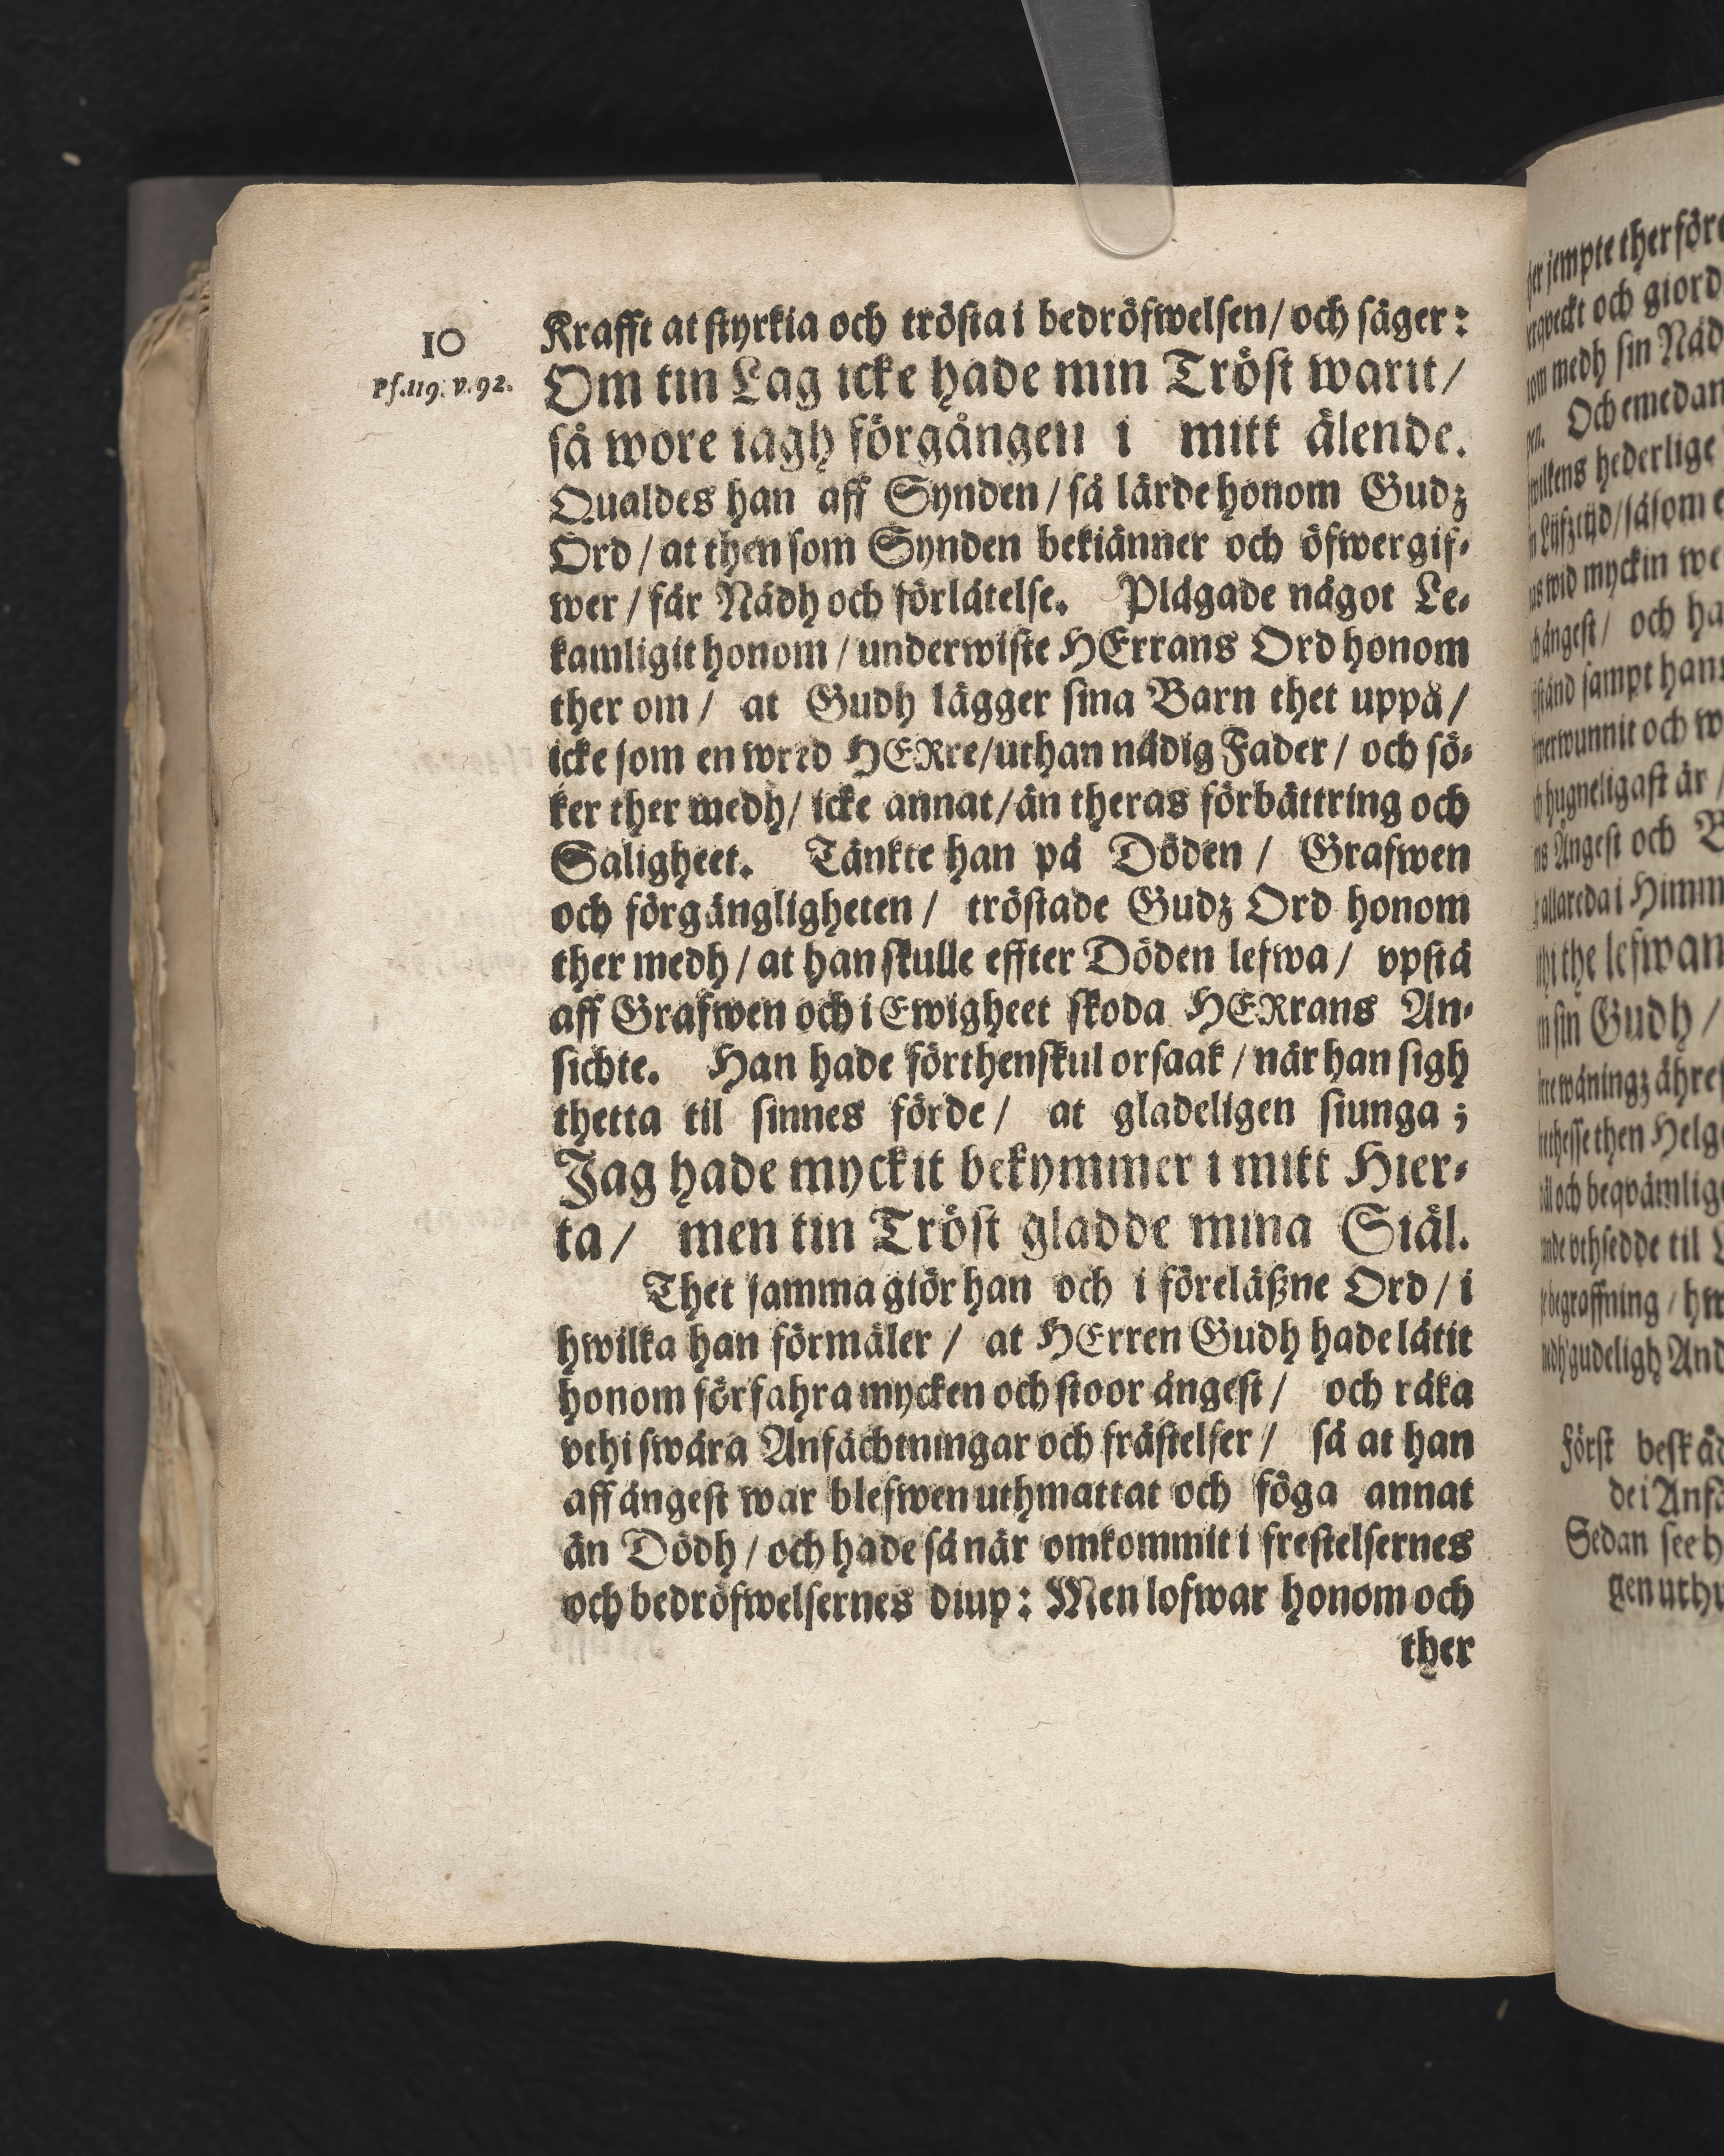 10
Ps.119. v.92.
Krafft at styrkia och trösta i bedröfwelsen / och säger:
Om tin Lag icke hade min Tröst warit /
så wore iagh förgången i mitt älende.
Qualdes han aff Synden / så lärde honom Gudz
Ord / at then som Synden bekiänner och öfwergif-
wer / får Nådh och förlåtelse. Plågade något Le-
kamligit honom / underwiste HErrans Ord honom
ther om / at Gudh lägger sina Barn thet uppå /
icke som en wred HERre / uthan nådig Fader / och sö-
ker ther medh / icke annat / än theras förbättring och
Saligheet. Tänkte han på Döden / Grafwen
och förgängligheten / tröstade Gudz Ord honom
ther medh / at han skulle effter Döden lefwa / vpstå
aff Grafwen och i Ewigheet skoda HERrans An-
sichte. Han hade förthenskul orsaak / när han sigh
thetta til sinnes förde / at gladeligen siunga ;
Jag hade myckit bekymmer i mitt Hier-
ta / men tin Tröst gladde mina Siäl.
Thet samma giör han och i föreläßne Ord / i
hwilka han förmäler / at HErren Gudh hade låtit
honom förfahra mycken och stoor ångest / och råka
vthi swåra Anfächtningar och frästelser / så at han
aff ångest war blefwen uthmattat och föga annat
än Dödh / och hade så när omkommit i frestelsernes
och bedröfwelsernes diup: Men lofwar honom och
ther
jempte therföre
och giord
medh sin Nåd
Och emedan
hederlige
såsom
wid myckin
ångest / och
sampt hans
och
hugneligast är /
Ångest och
allareda i
the lefwan
sin Gudh /
then
och beqvämlig
til
begraffning /
gudeligh
Först
Sedan see